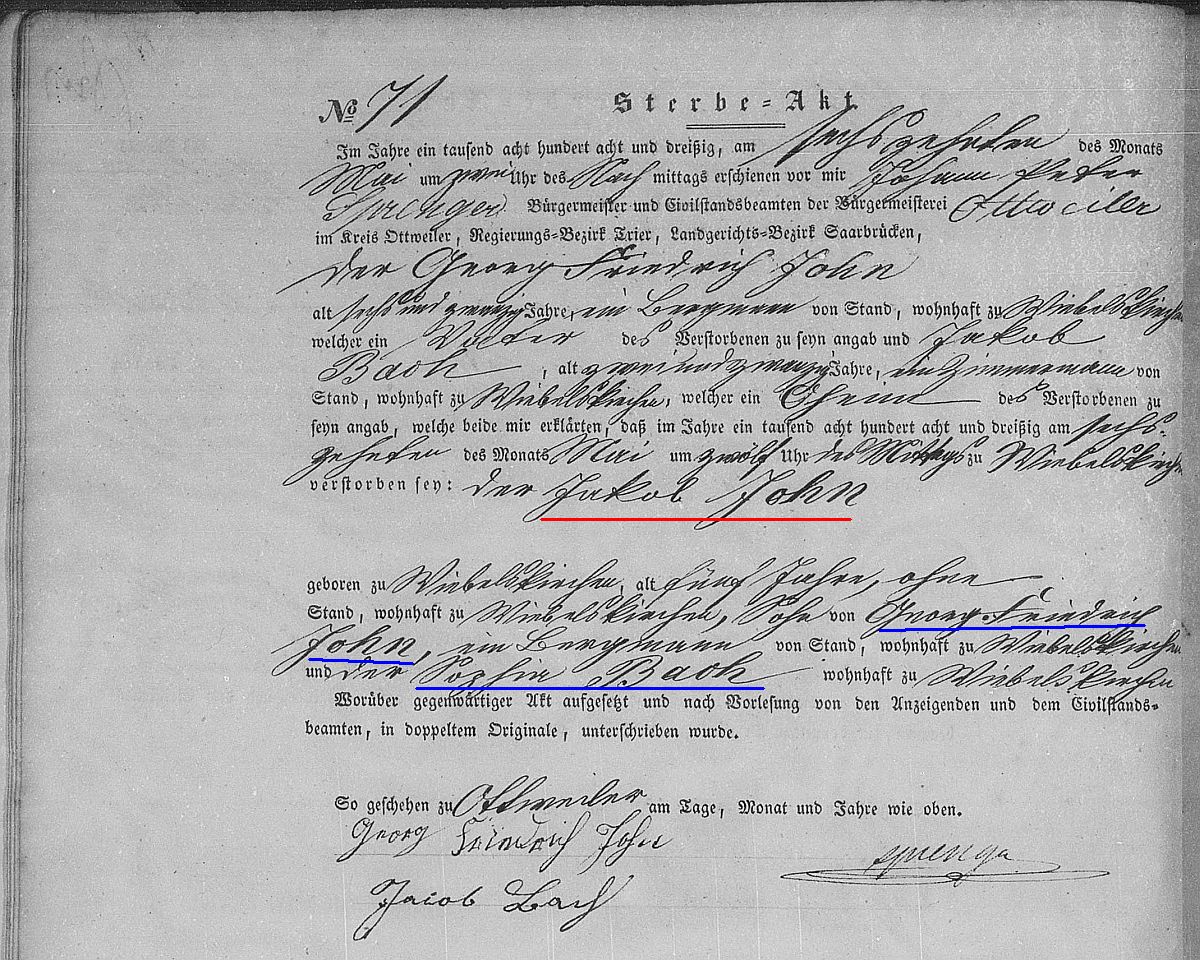 No 71 Sterbe-Akt
Im Jahre ein tausend acht hundert acht und dreißig, am sechszehnten des Monats
Mai um zwei Uhr des Nach mittags erschienen vor mir Johann Peter
Sprenger Bürgermeister und Civilstandsbeamten der Bürgermeisterei Ottweiler
im Kreis Ottweiler, Regierungs-Bezirk Trier, Landgerichts-Bezirk Saarbrücken,
der Georg Friedrich John
alt sechs und zwanzig Jahre, ein Bergmann von Stand, wohnhaft zu Wiebelskirchen
welcher ein Vatter des Verstorbenen zu seyn angab und Jakob
Bach, alt zwei und zwanzig Jahre, ein Zimmermann von
Stand, wohnhaft zu Wiebelskirchen, welcher ein Oheim des Verstorbenen zu
seyn angab, welche beide mir erklärten, daß im Jahre ein tausend acht hundert acht und dreißig am sechs-
zehnten des Monats Mai um zwölf Uhr des Mittags zu Wiebelskirchen
verstorben sey: der Jakob John
geboren zu Wiebelskirchen, alt fünf Jahre, ohne
Stand, wohnhaft zu Wiebelskirchen, Sohn von Georg Friedrich
John, ein Bergmann von Stand, wohnhaft zu Wiebelskirchen
und der Sophia Bach wohnhaft zu Wiebelskirchen
Worüber gegenwärtiger Akt aufgesetzt und nach Vorlesung von den Anzeigenden und dem Civilstands-
beamten, in doppeltem Originale, unterschrieben wurde.
So geschehen zu Ottweiler am Tage, Monat und Jahre wie oben.
Georg Friedrich John
Sprenger
Jacob Bach